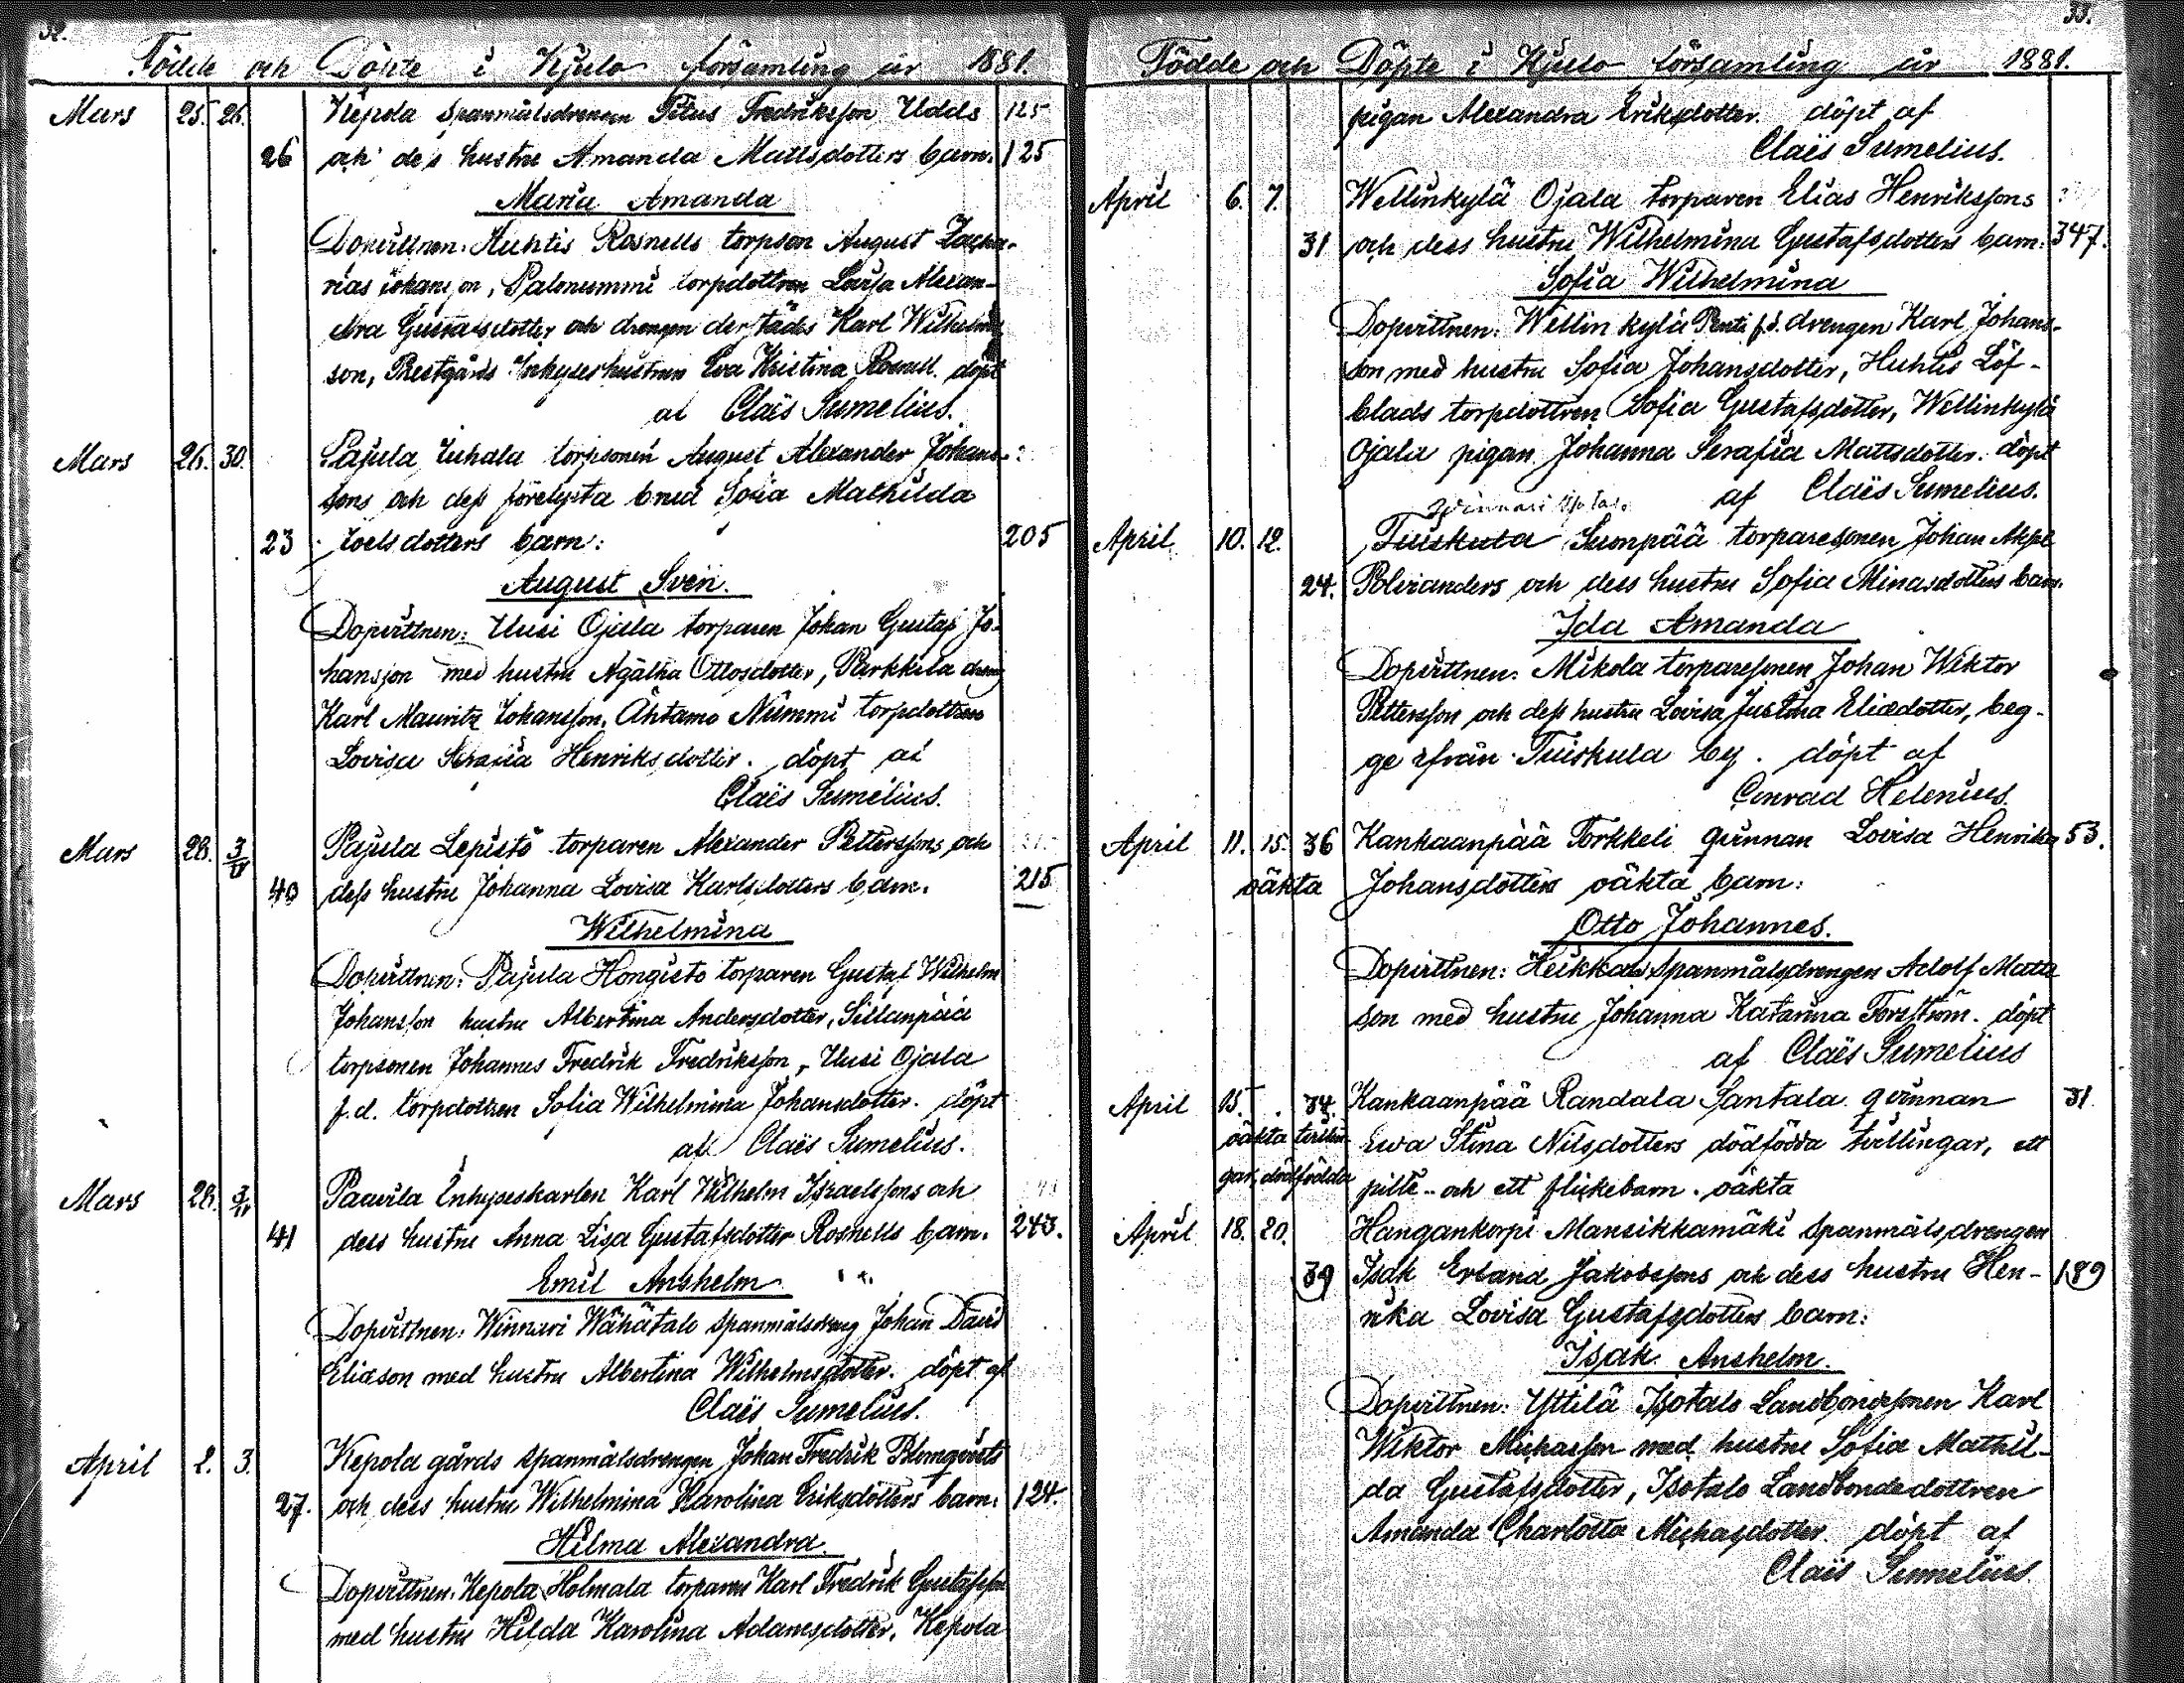 32.
Födde och Döpte i Kjulo församling år 1881.
Mars 25. 26. Kepola spanmålsdrengen Titus Fredriksson Udds 125
26 och des hustru Amanda Mattsdotters barn. 125
Maria Amanda
Dopvittnen: Huhtis Rosnells torpson August Zacha-
rias Johansson, Palonummi torpdottren Lovisa Alexan-
dra Gustafsdotter och drengen derstädes Karl Wilhelms
son, Prestgårds Inhyseshustrun Eva Kristina Rosnell. döpt
af Claës Sumelius.
Mars 26. 30. Pajula Juhala torpsonen August Alexander Johans-
sons och dess förelysta brud Sofia Mathilda
23 Joelsdotters barn: 205
August Sven.
Dopvittnen: Uusi Ojala torparen Johan Gustaf Jo-
hansson med hustru Agatha Ottosdotter, Perkkila dreng
Karl Mauritz Johansson, Ähtamo Nummi torpdottren
Lovisa Serafia Henriksdotter. döpt af
Claës Sumelius.
Mars 28. 3/IV Pajula Lepistö torparen Alexander Petterssons och
40 dess hustru Johanna Lovisa Karlsdotters barn. 215
Wilhelmina
Dopvittnen: Pajula Hongisto torparen Gustaf Wilhelm
Johansson hustru Albertina Andersdotter, Sillanpää
torpsonen Johannes Fredrik Fredriksson, Uusi Ojala
f.d. torpdottren Sofia Wilhelmina Johansdotter. döpt
af Claës Sumelius.
Mars 28. 3/IV Paavila Inhyseskarlen Karl Wilhelm Israelssons och
41 dess hustru Anna Lisa Gustafsdotter Rosnells barn. 243.
Emil Anshelm
Dopvittnen: Winnari Wähätalo spanmålsdreng Johan David
Eliasson med hustru Albertina Wilhelmsdotter. döpt af
Claës Sumelius.
April 2. 3. Kepola gårds spanmålsdrengen Johan Fredrik Blomqvists
27. och dess hustru Wilhelmina Karolina Eriksdotters barn: 124.
Hilma Alexandra.
Dopvittnen: Kepola Holmala torparen Karl Fredrik Gustafsson
med hustru Hilda Karolina Adamsdotter, Kepola
33.
Födde och Döpte i Kjulo församling år 1881.
pigan Alexandra Eriksdotter. döpt af
Claës Sumelius.
April 6. 7. Wellinkylä Ojala torparen Elias Henrikssons
31 och dess hustru Wilhelmina Gustafsdotters barn: 347.
Sofia Wilhelmina
Dopvittnen: Wellinkylä Pentti f.d. drengen Karl Johans-
son med hustru Sofia Johansdotter, Huhtis Löf-
blads torpdottren Sofia Gustafsdotter, Wellinkylä
Ojala pigan Johanna Serafia Mattsdotter. döpt
af Claës Sumelius.
Winnari
April 10. 12. Tuiskula Suonpää torparesonen Johan
24. Polvianders och dess hustru Sofia Minasdotters barn.
Ida Amanda
Dopvittnen: Mikola torparesonen Johan Wiktor
Pettersson och dess hustru Lovisa Justina Eliædotter, beg-
ge ifrån Tuiskula by. döpt af
Conrad Helenius.
April 11. 15. 36 Kankaanpää Torkkeli qvinnan Lovisa Henrika 53.
oäkta Johansdotters oäkta barn:
Otto Johannes.
Dopvittnen: Heikkas spanmålsdrengen Adolf Matts
son med hustru Johanna Katarina Forsström. döpt
af Claës Sumelius
April 15. 34. Kankaanpää Randala Santala qvinnan 31.
oäkta tvillin- Ewa Stina Nilsdotters dödfödda tvillingar, ett
gar, dödfödda pilte- och ett flickebarn. oäkta
April 18. 20. Hangankorpi Mansikkamäki spanmålsdrengen
39 Isak Erland Jakobssons och dess hustru Hen- 189
rika Lovisa Gustafsdotters barn:
Isak Anshelm.
Dopvittnen: Yttilä Isotalo Landbondesonen Karl
Wiktor Michasson med hustru Sofia Mathil-
da Gustafsdotter, Isotalo Landbondedottren
Amanda Charlotta Michasdotter. döpt af
Claës Sumelius.